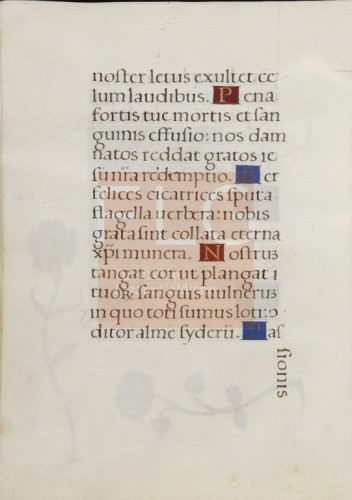 noster letus exultet ce
lum laudibus. P ena
fortis tue mortis et san
guinis effusio: nos dam
natos reddat gratos ie
su nr̃a redemptio. P er
felices cicatrices sputa
flagella uerbera: nobis
grata sint collata eterna
xp̃i munera. N ostrus
tangat cor ut plangat i
tuoꝝ sanguis uulnerus
in quo toti sumus loti: cō
ditor alme syderũ.
sionis